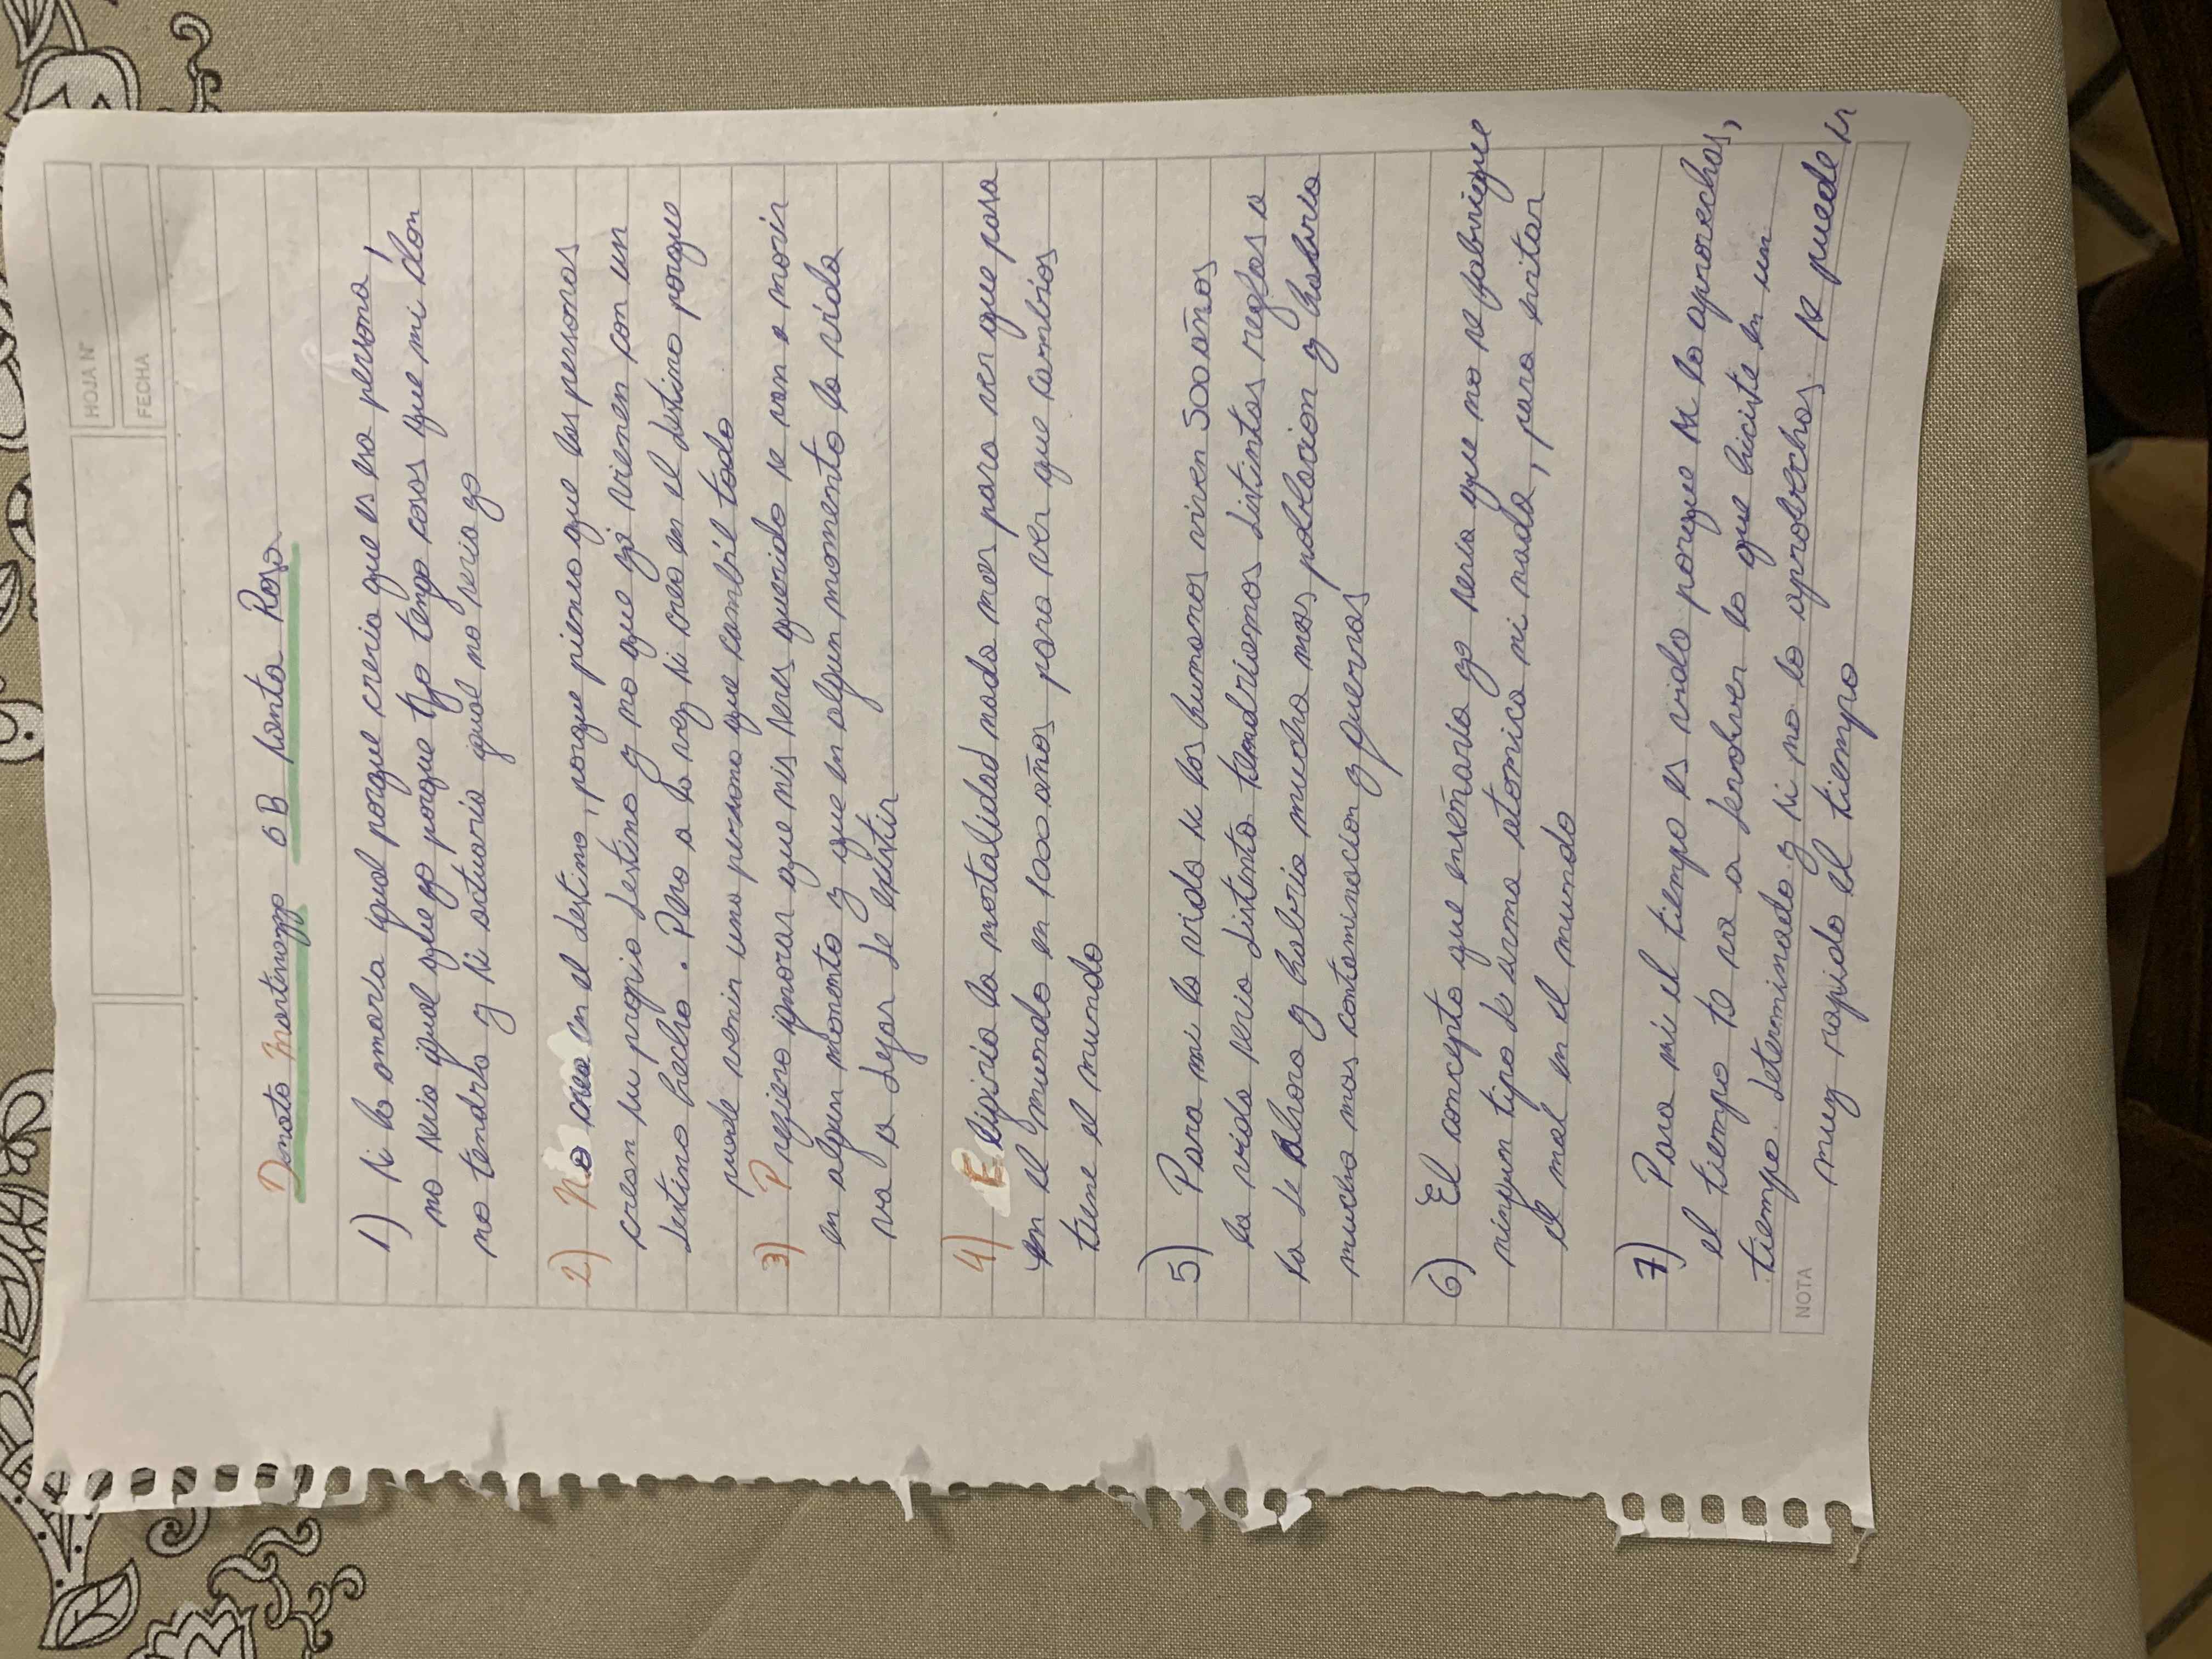 HOJA N°
FECHA
Donato Martinazzo 6B Santa Rosa
1) Si lo amaría igual porque creria que es esa persona,
no seria igual que yo porque yo tengo cosas que mi clon
no tendra y si actuaria igual no seria yo
2) No creo en el destino, porque pienso que las personas
crean su propio destino y no que ya vienen con un
destino hecho. Pero a la vez si creo en el destino porque
puede venir una persona que cambie todo
3) Prefiero ignorar que mis seres querido se van a morir
en algun momento y que en algun momento la vida
va a dejar de existir
4) Eligiria la mortalidad nada mas para ver que pasa
en el mundo en 1000 años para ver que cambios
tiene el mundo
5) Para mi la vida si los humanos viven 500 años
la vida seria distinta tendriamos distintas reglas a
la de ahora y habria mucha mas poblacion y habria
mucha mas contaminacion y guerras
6) El concepto que enseñaria yo seria que no se fabrique
ningun tipo de arma atomica ni nada, para evitar
el mal en el mundo
7) Para mi el tiempo es vida porque si lo aprovechas,
el tiempo te va a devolver lo que hiciste en un
tiempo determinado y si no lo aprobechas se puede ir
NOTA
muy rapido el tiempo